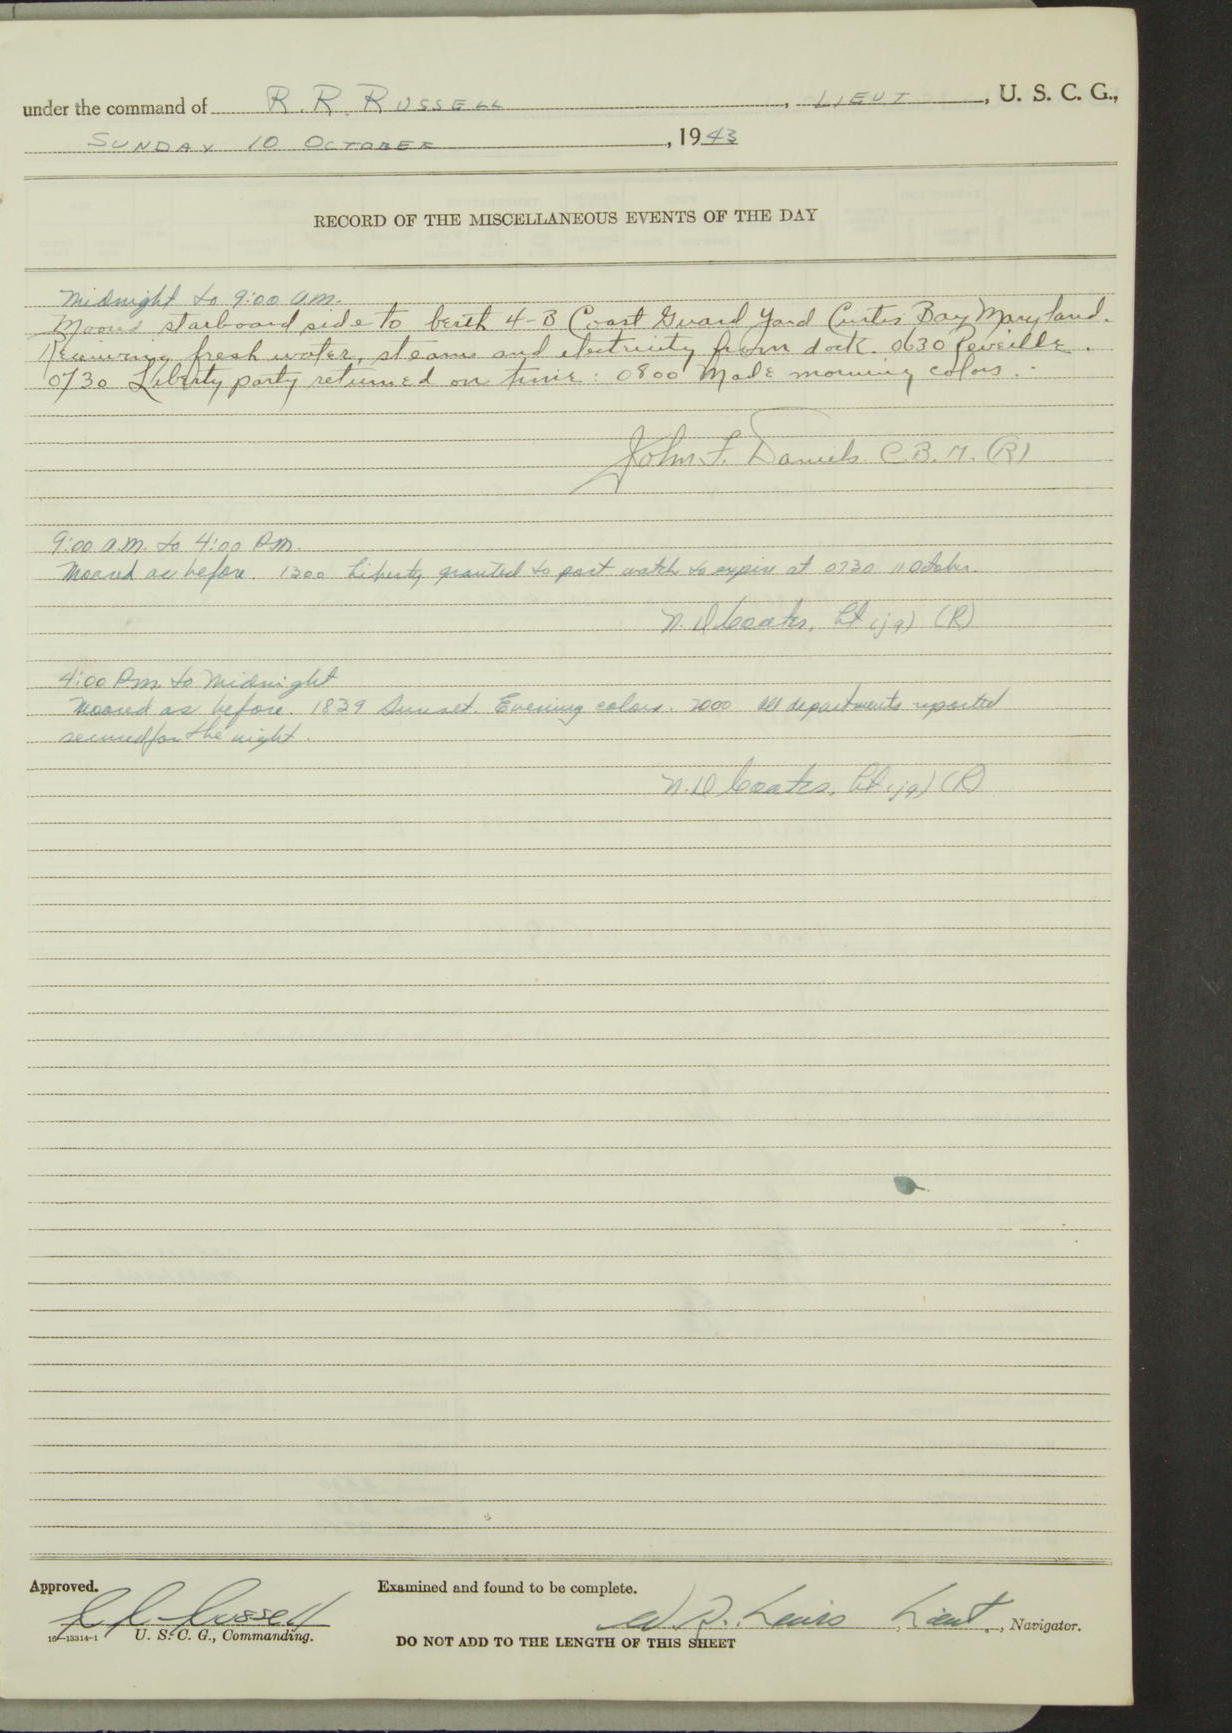 under the command of R. R. RUSSELL, LIEUT, U. S. C. G.,
SUNDAY 10 OCTOBER, 1943
RECORD OF THE MISCELLANEOUS EVENTS OF THE DAY
Midnight to 9:00 a.m.
Moored starboard side to berth 4-B Coast Guard Yard Curtis Bay Maryland.
Receiving fresh water, steam and electricity from dock. 0630 Reveille.
0730 Liberty party returned on time: 0800 Made morning colors.
John F. Daniels C.B.M. (R)
9:00 a.m. to 4:00 P.m.
Moored as before. 1300 Liberty granted to port watch to expire at 0730 11 October.
N. D Coates, Lt (jg) (R)
4:00 P.m. to Midnight
Moored as before. 1839 Sunset. Evening colors. 2000 All departments reported
secured for the night.
N. D Coates, Lt (jg) (R)
Approved.
Examined and found to be complete.
R R Russell
W. D. Lewis, Lieut., Navigator.
16—13314-1 U. S. C. G., Commanding.
DO NOT ADD TO THE LENGTH OF THIS SHEET